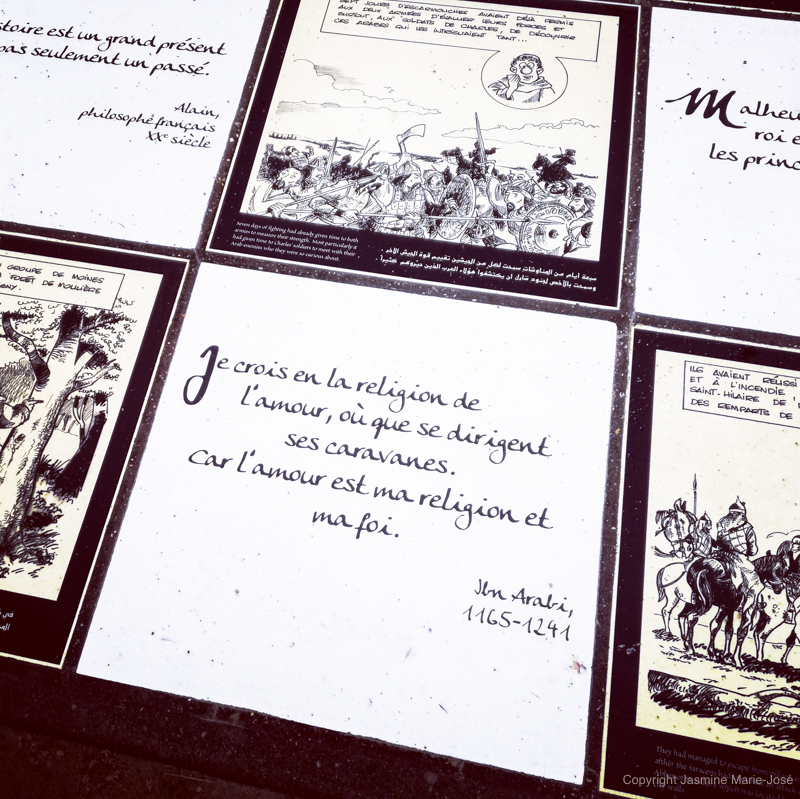 stoire est un grand présent
pas seulement un passé.
Alain,
philosophe français
XXe siècle
SEPT JOURS D'ESCARMOUCHES AVAIENT DÉJÀ PERMIS
AUX DEUX ARMÉES D'ÉVALUER LEURS FORCES ET
SURTOUT, AUX SOLDATS DE CHARLES, DE DÉCOUVRIR
CES ARABES QUI LES INTRIGUAIENT TANT...
Seven days of fighting had already given time to both
armies to measure their strength. Most particularly it
had given time to Charles' soldiers to meet with their
Arab enemies who they were so curious about.
سبعة أيام من المناوشات سمحت لكل من الجيشين تقييم قوة الجيش الآخر.
وسمحت بالأخص لجنود شارل أن يكتشفوا هؤلاء العرب الذين حيّروهم كثيراً.
Malheu
roi e
les princ
GROUPE DE MOINES
FORÊT DE MOULIÈRE
GNY
في
Je crois en la religion de
l'amour, où que se dirigent
ses caravanes.
Car l'amour est ma religion et
ma foi.
Ibn Arabi,
1165-1241
ILS AVAIENT RÉUSSI
ET À L'INCENDIE
SAINT-HILAIRE DE
DES REMPARTS DE
They had managed to escape from
after the Saracens had
walls.
Copyright Jasmine Marie-José